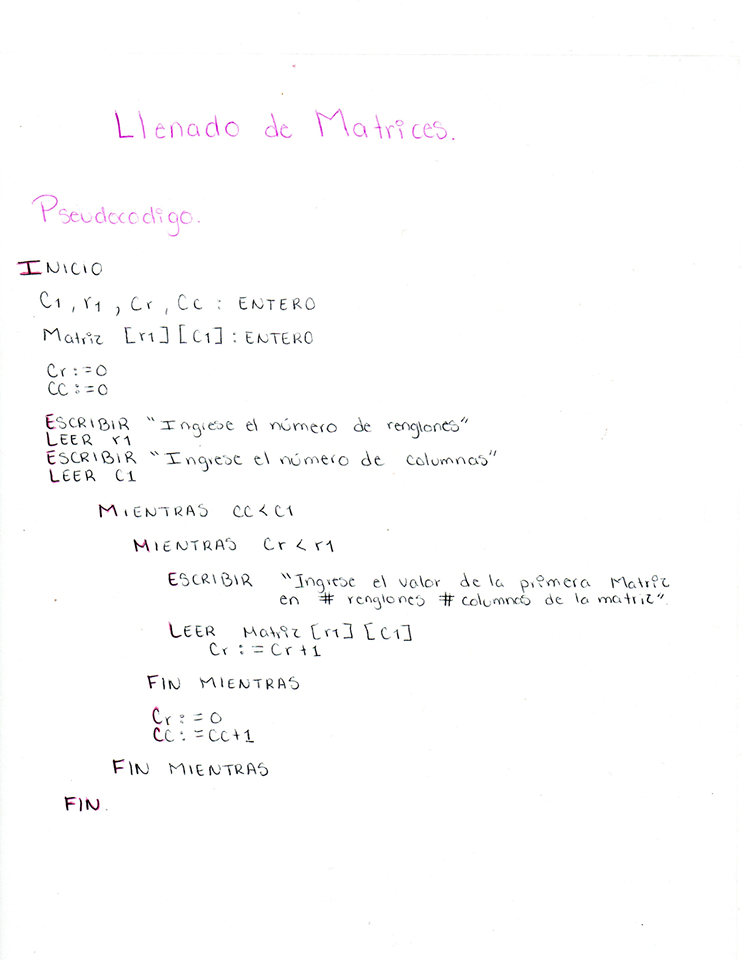 Llenado de Matrices.
Pseudocodigo.
INICIO
C1, r1, Cr, Cc : ENTERO
Matriz [r1] [C1] : ENTERO
Cr := 0
CC := 0
ESCRIBIR "Ingrese el número de renglones"
LEER r1
ESCRIBIR "Ingrese el número de columnas"
LEER C1
MIENTRAS CC < C1
MIENTRAS Cr < r1
ESCRIBIR "Ingrese el valor de la primera Matriz
en # renglones # columnas de la matriz".
LEER Matriz [r1] [C1]
Cr := Cr + 1
FIN MIENTRAS
Cr := 0
CC := CC+1
FIN MIENTRAS
FIN.